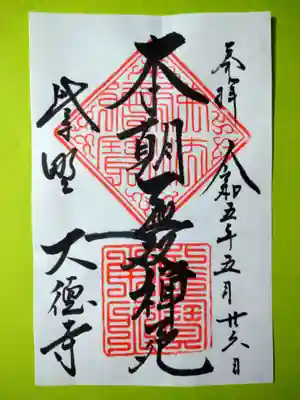 奉拝
令和五年五月廿六日
本朝無双禅苑
紫野
大徳寺